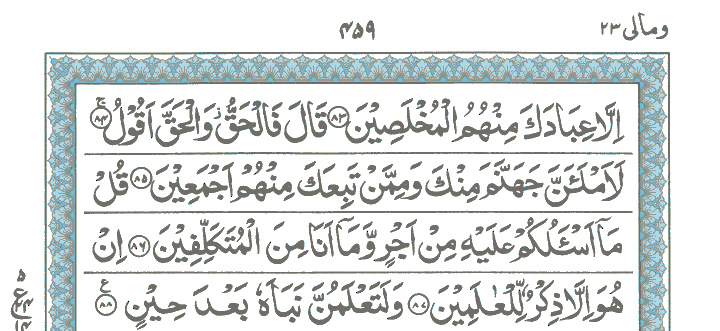 ومالی ۲۳
۴۵۹
اِلَّا عِبَادَكَ مِنْهُمُ الْمُخْلَصِيْنَ ۸۳ قَالَ فَالْحَقُّ ؗ وَالْحَقَّ اَقُوْلُ ۸۴
لَاَمْلَـَٔنَّ جَهَنَّمَ مِنْكَ وَمِمَّنْ تَبِعَكَ مِنْهُمْ اَجْمَعِيْنَ ۸۵ قُلْ
مَاۤ اَسْـَٔلُكُمْ عَلَيْهِ مِنْ اَجْرٍ وَّمَاۤ اَنَا مِنَ الْمُتَكَلِّفِيْنَ ۸۶ اِنْ
هُوَ اِلَّا ذِكْرٌ لِّلْعٰلَمِيْنَ ۸۷ وَلَتَعْلَمُنَّ نَبَاَهٗ بَعْدَ حِيْنٍ ۸۸